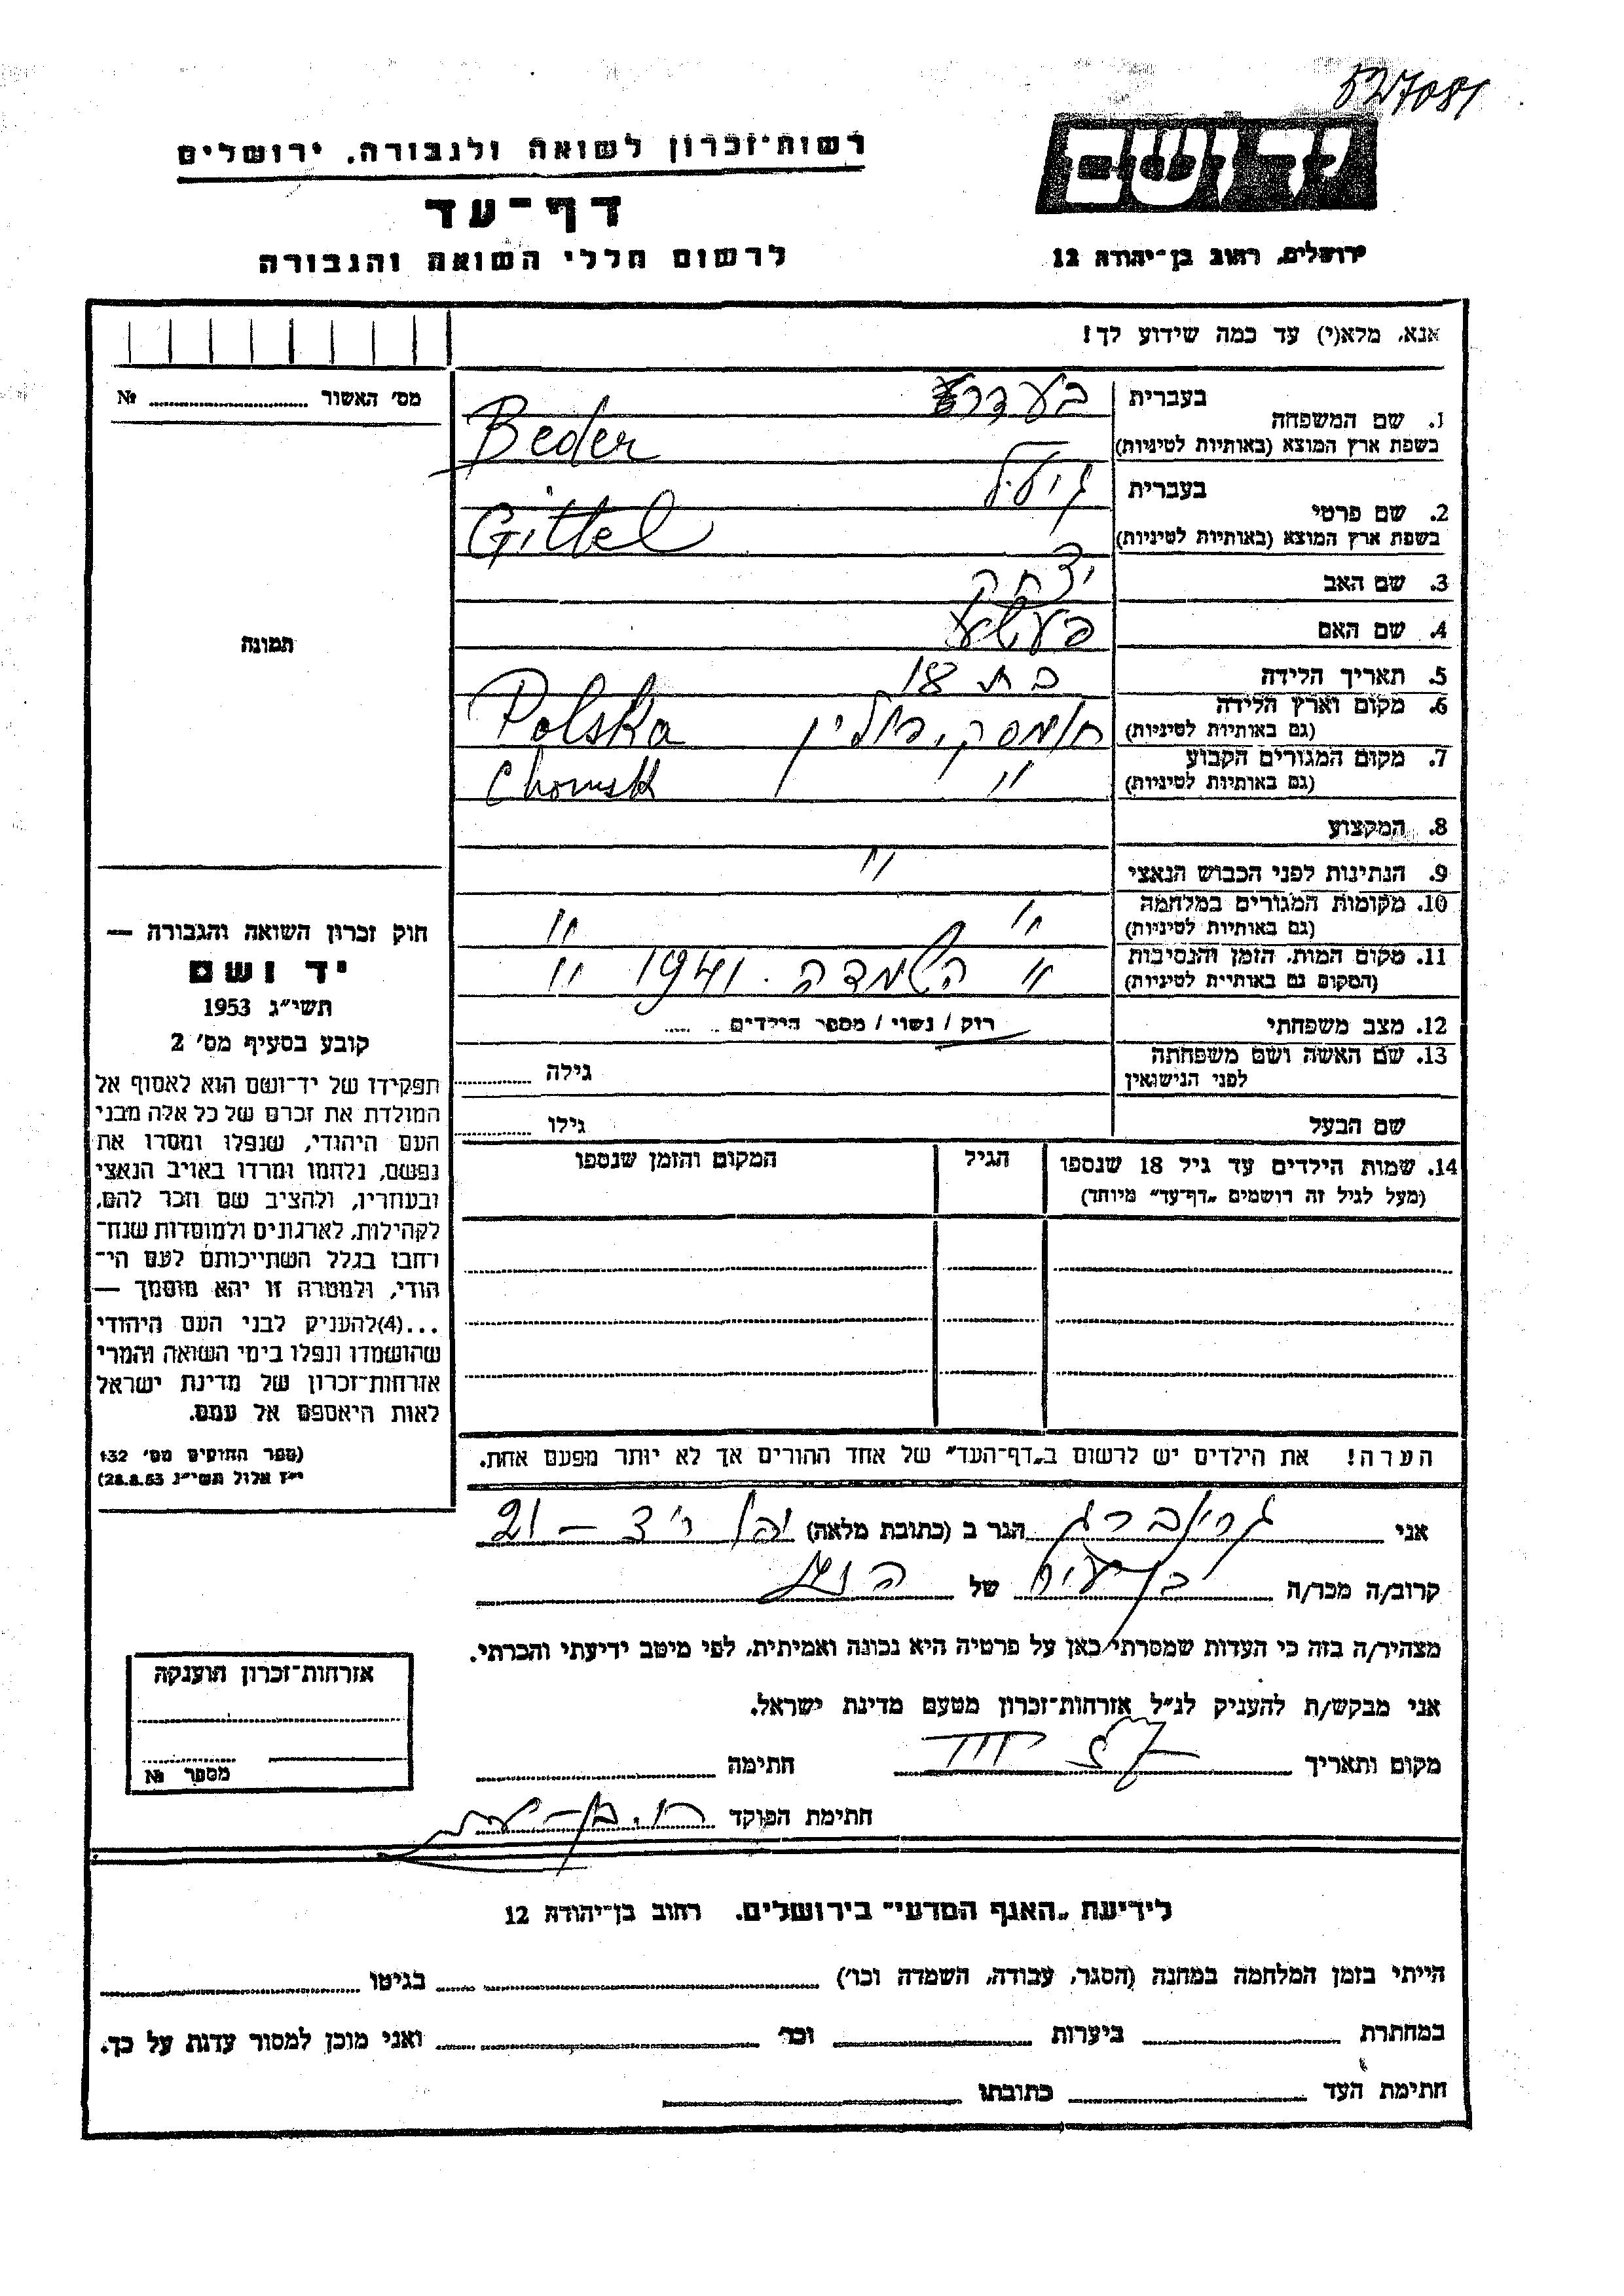 527081
רשות־זכרון לשואה ולגבורה. ירושלים
יד ושם
דף־עד
לרשום חללי השואה והגבורה
ירושלים, רחוב בן־יהודה 12
אנא, מלא(י) עד כמה שידוע לך!
מס' האשור № 
1. שם המשפחה
בעברית בעדר
בשפת ארץ המוצא (באותיות לטיניות) Beder
2. שם פרטי
בעברית גיטל
בשפת ארץ המוצא (באותיות לטיניות) Gittel
3. שם האב יצחק
4. שם האם
תמונה
5. תאריך הלידה בת 18
6. מקום וארץ הלידה (גם באותיות לטיניות) חומסק, פולין Polska
7. מקום המגורים הקבוע (גם באותיות לטיניות) " Chomsk
8. המקצוע
9. הנתינות לפני הכבוש הנאצי "
10. מקומות המגורים במלחמה (גם באותיות לטיניות) " "
11. מקום המות, הזמן והנסיבות (המקום גם באותיות לטיניות) " השמדה. 1941 "
12. מצב משפחתי רוק / נשוי / מספר הילדים
13. שם האשה ושם משפחתה לפני הנישואין גילה
שם הבעל גילו
14. שמות הילדים עד גיל 18 שנספו
(מעל לגיל זה רושמים „דף־עד" מיוחד)
הגיל
המקום והזמן שנספו
הערה! את הילדים יש לרשום ב„דף־העד" של אחד ההורים אך לא יותר מפעם אחת.
חוק זכרון השואה והגבורה —
יד ושם
תשי"ג 1953
קובע בסעיף מס' 2
תפקידו של יד־ושם הוא לאסוף אל
המולדת את זכרם של כל אלה מבני
העם היהודי, שנפלו ומסרו את
נפשם, נלחמו ומרדו באויב הנאצי
ובעוזריו, ולהציב שם וזכר להם,
לקהילות, לארגונים ולמוסדות שנח־
רחבו בגלל השתייכותם לעם הי־
הודי, ולמטרה זו יהא מוסמך —
...(4)להעניק לבני העם היהודי
שהושמדו ונפלו בימי השואה והמרי
אזרחות־זכרון של מדינת ישראל
לאות היאספם אל עמם.
(ספר החוקים מס' 132
י"ז אלול תשי"ג 28.8.53)
אני גרינברג הגר ב (כתובת מלאה) 21 —
קרוב/ה מכר/ה של
מצהיר/ה בזה כי העדות שמסרתי כאן על פרטיה היא נכונה ואמיתית, לפי מיטב ידיעתי והכרתי.
אני מבקש/ת להעניק לנ"ל אזרחות־זכרון מטעם מדינת ישראל.
מקום ותאריך חתימה
חתימת הפוקד
אזרחות־זכרון הוענקה
מספר №
לידיעת „האגף המדעי" בירושלים. רחוב בן־יהודה 12
הייתי בזמן המלחמה במחנה (הסגר, עבודה, השמדה וכו') בגיטו
במחתרת ביערות וכו' ואני מוכן למסור עדות על כך.
חתימת העד כתובתו